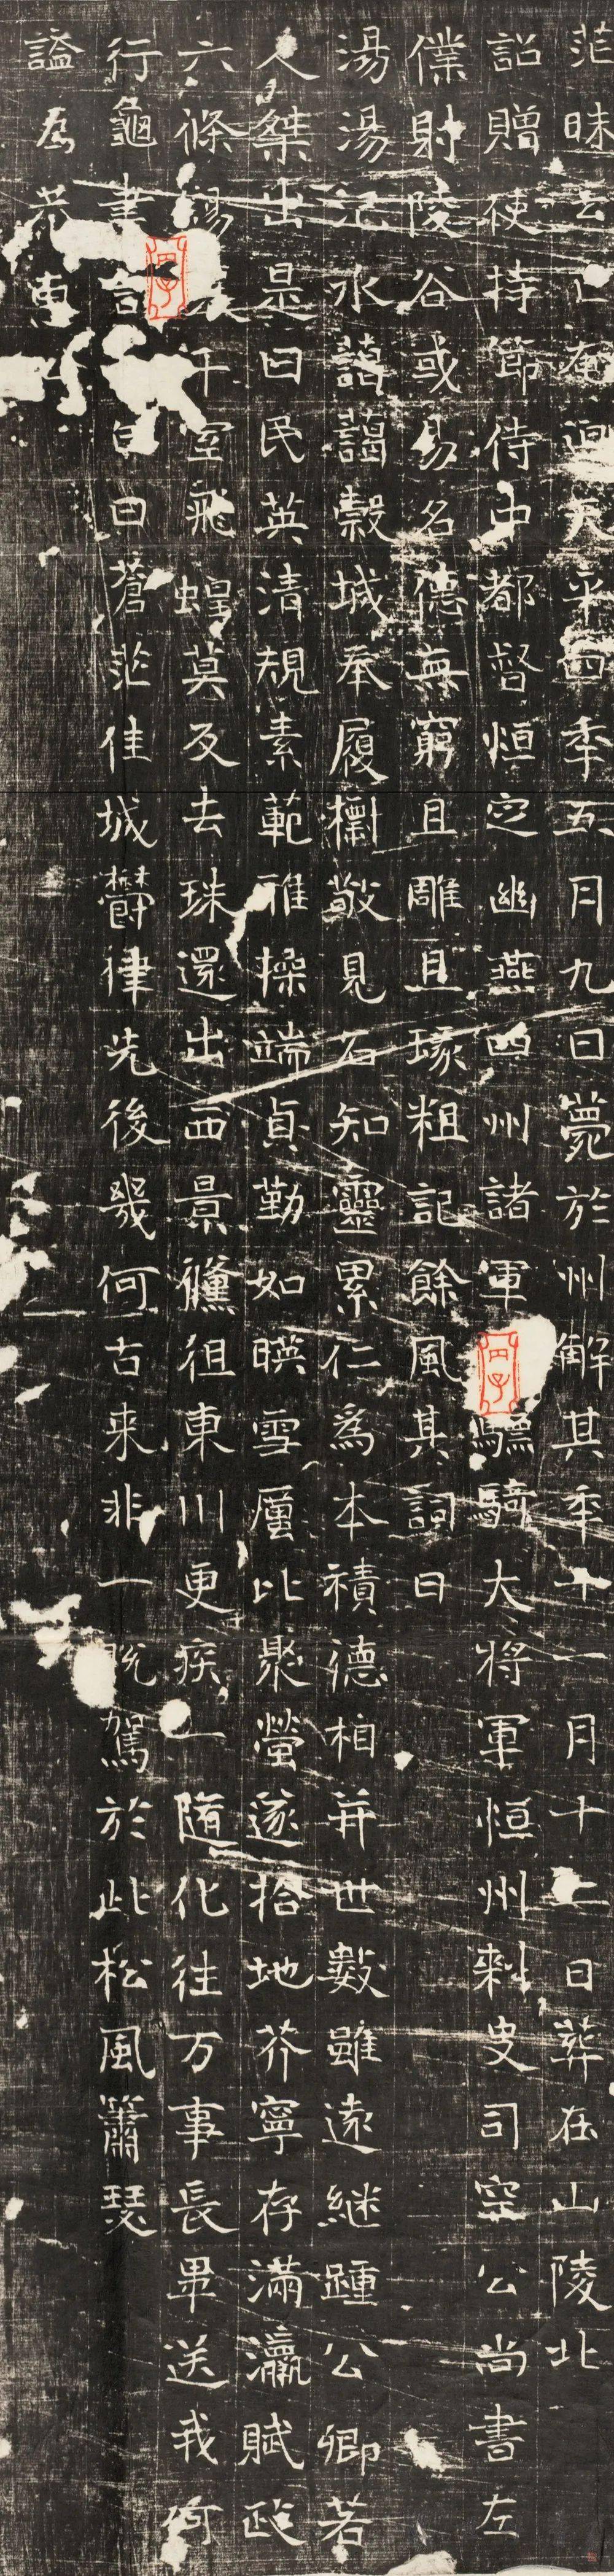 茫昧去奄迴天平四年五月九日薨於州解其年十一月十二日葬在山陵北
詔贈使持節侍中都督恒定幽燕四州諸軍驃騎大將軍恒州刺史司空公尚書左
僕射陵谷或易名德無窮且雕且琢粗記餘風其詞曰
湯湯汜水藹藹穀城奉履敬見石知靈累仁為本積德相并世數雖遠継踵公卿若
人桀出是曰民英清規素範雅操端貞勤如暎雪厲比聚螢遂拾地芥寧存滿瀛賦政
六條湯千室飛蝗莫反去珠還出西景儵徂東川更疾一随化往万事長畢送我何
行龜書言曰蒼茫佳城鬱律先後幾何古来非一脱駕於此松風簫瑟
謚為恭惠